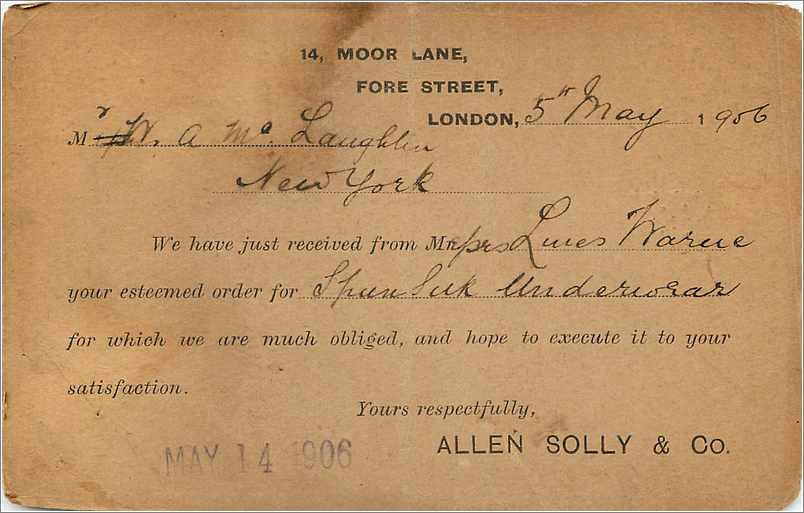 14, MOOR LANE,
FORE STREET,
LONDON, 5th May 1906
Mr W. A McLaughlin
New York
We have just received from Messrs Lines Warne
your esteemed order for Spun Silk Underwear
for which we are much obliged, and hope to execute it to your
satisfaction.
Yours respectfully,
ALLEN SOLLY & Co.
MAY 14 1906